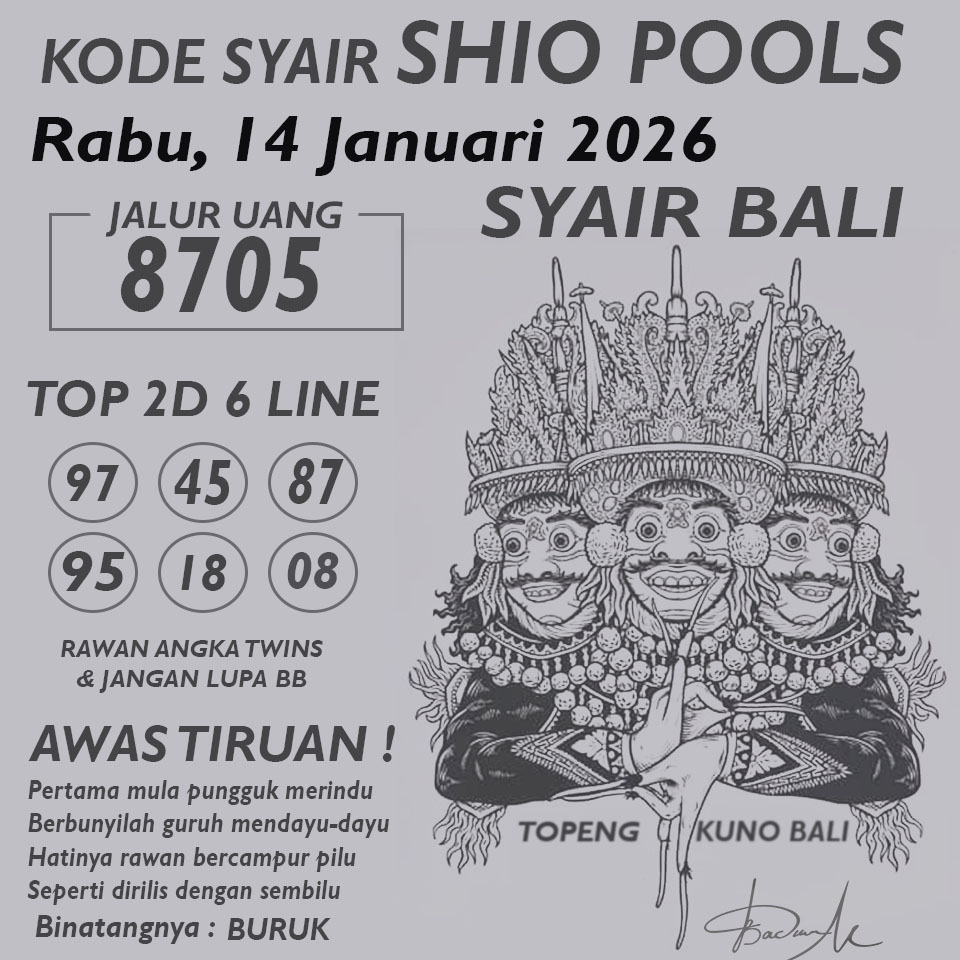 KODE SYAIR SHIO POOLS
Rabu, 14 Januari 2026
SYAIR BALI
JALUR UANG
8705
TOP 2D 6 LINE
97 45 87
95 18 08
RAWAN ANGKA TWINS
& JANGAN LUPA BB
AWAS TIRUAN !
Pertama mula pungguk merindu
Berbunyilah guruh mendayu-dayu
Hatinya rawan bercampur pilu
Seperti dirilis dengan sembilu
Binatangnya : BURUK
TOPENG KUNO BALI